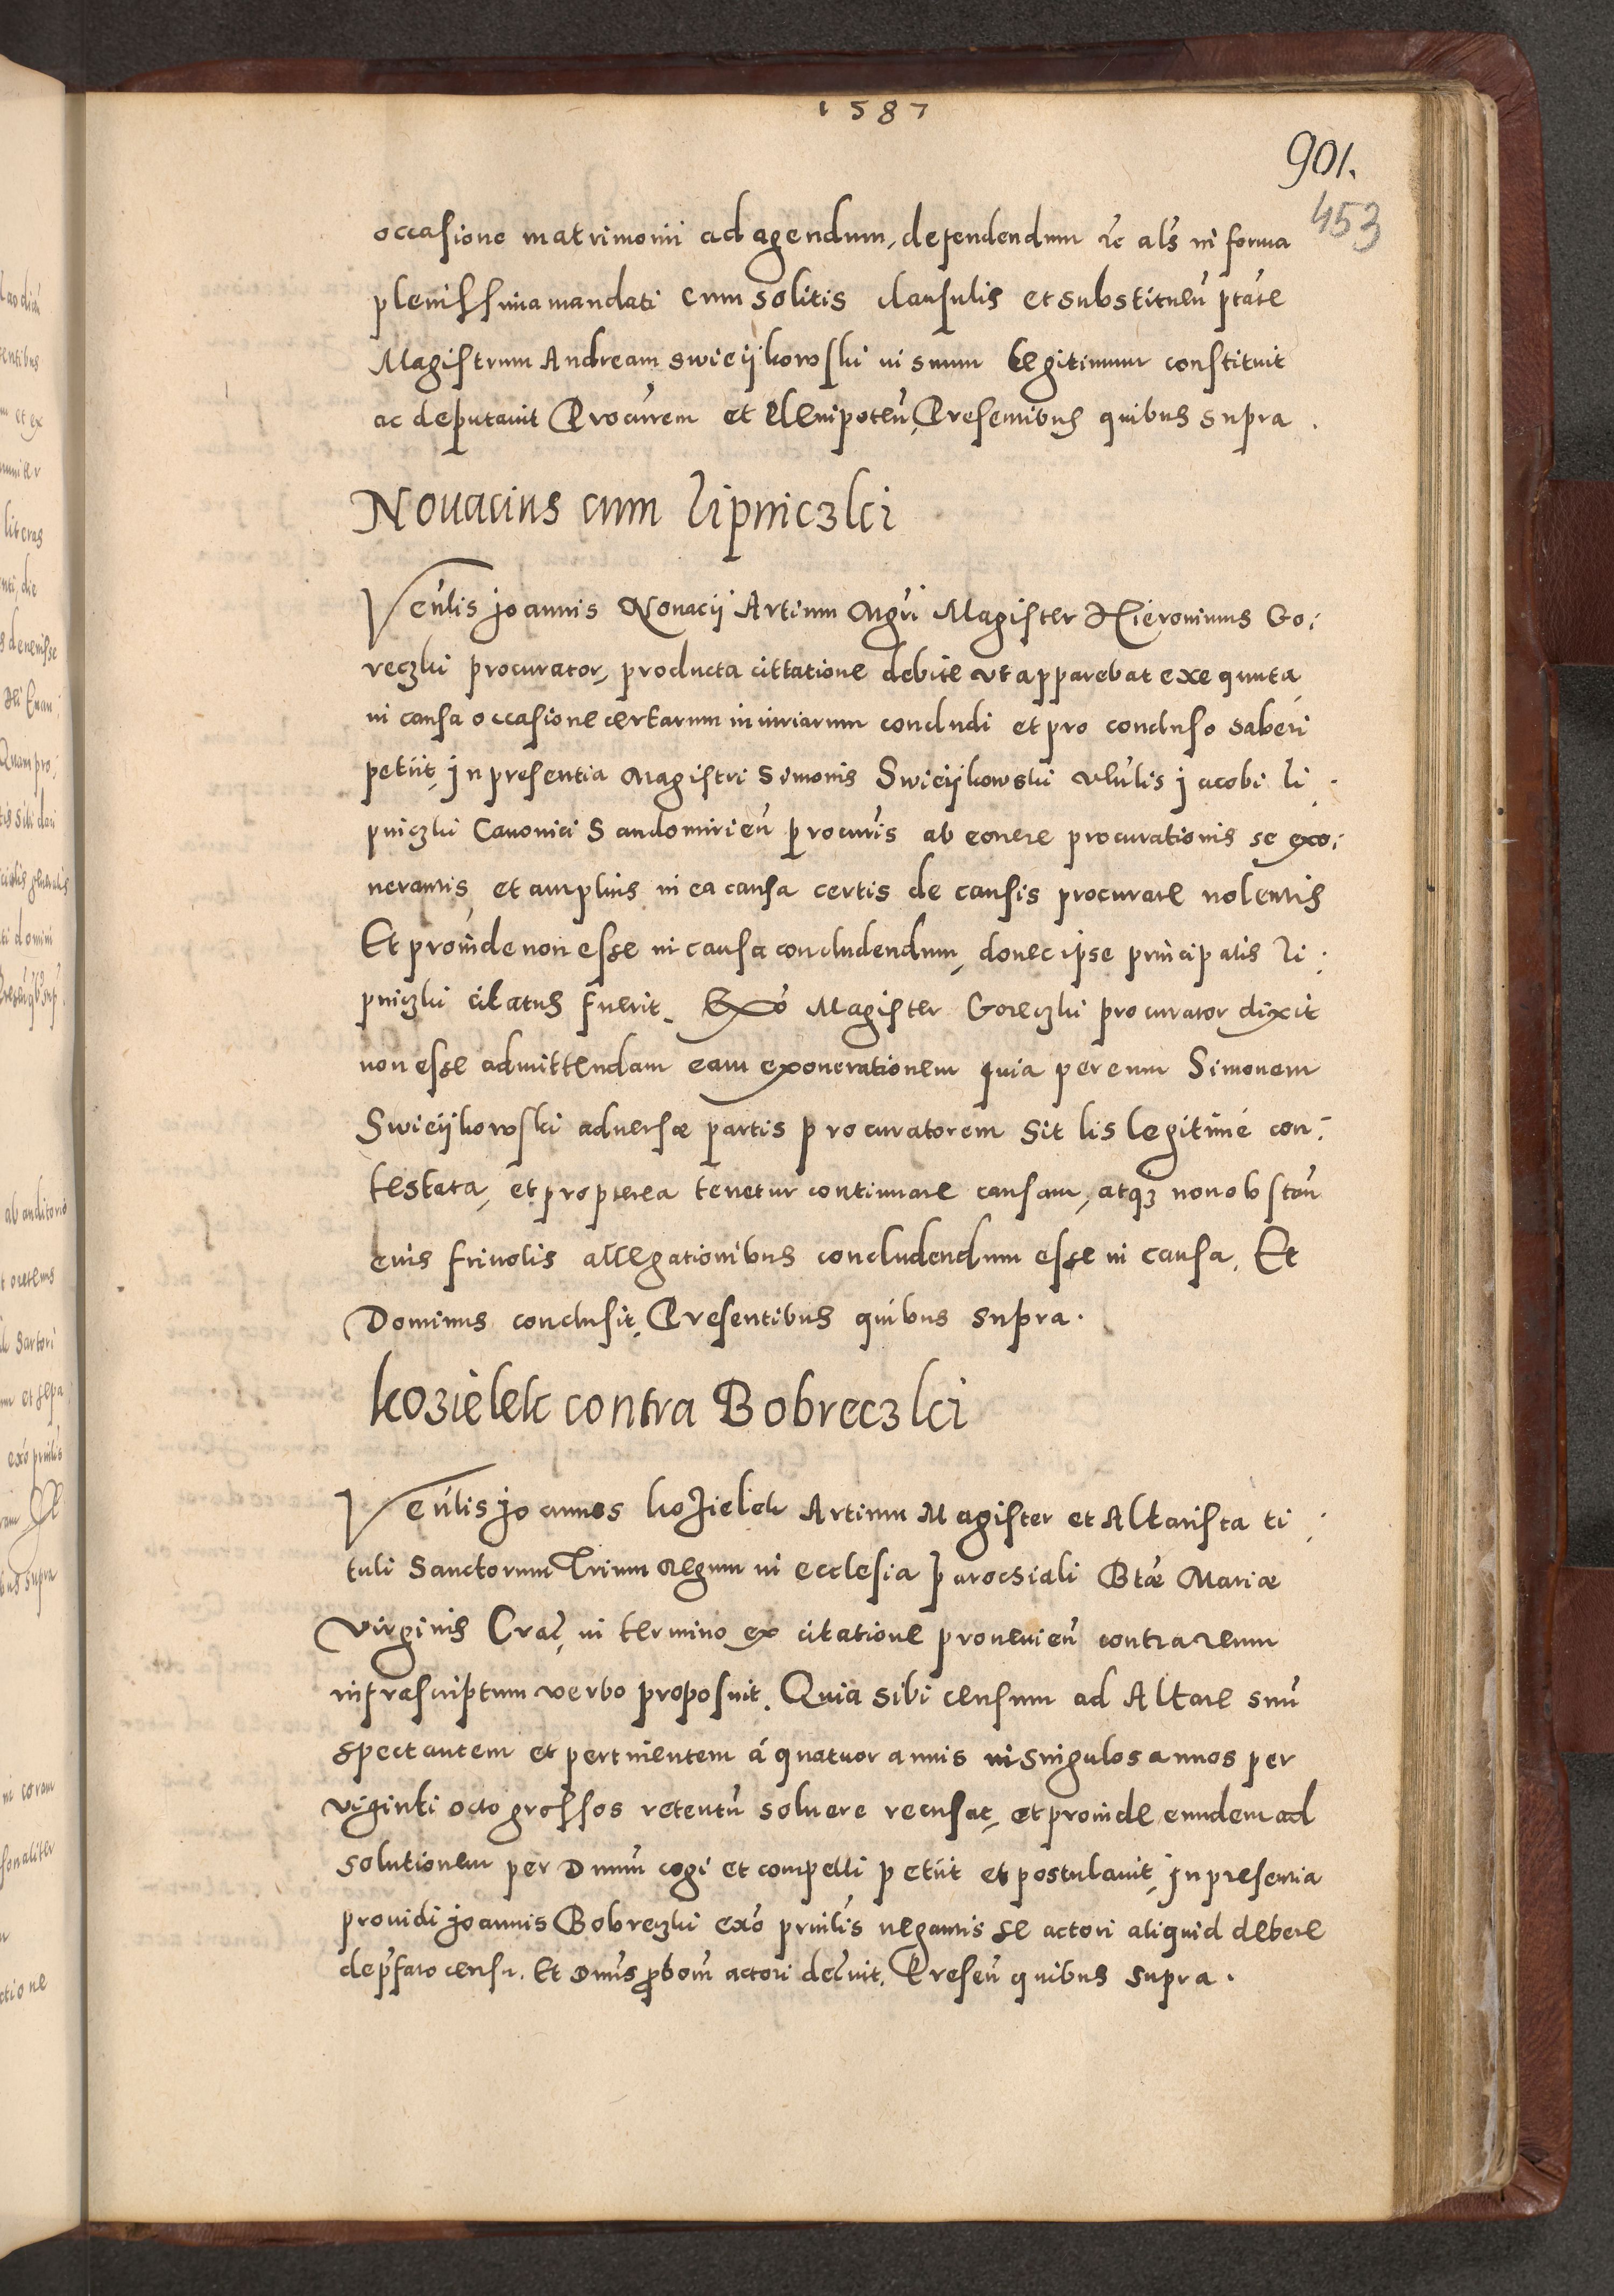 1587
901.
453
occasione matrimonii ad agendum, defendendum &c als in forma
plenissima mandati cum solitis clausulis et substituen ptate
Magistrum Andream Swieijkowski in suum legitimum constituit
ac deputavit Procurem et Plenipoten, Presentibus quibus supra.
Novacius cum Lipniczki
Venlis Joannis Novacij Artium Mgri Magister Hieronimus Go:
reczki procurator, producta cittatione debite ut apparebat exequuta
in causa occasione certarum iniuriarum concludi et pro concluso haberi
petiit, in presentia Magistri Simonis Swieijkowski Venlis Jacobi Li:
pniczki Canonici Sandomirien procuris ab eonere procurationis se exo:
nerantis et amplius in ea causa certis de causis procurare nolentis
Et proinde non esse in causa concludendum, donec ipse principalis Li:
pniczki citatus fuerit. Exo Magister Goreczki procurator dixit
non esse admittendam eam exonerationem quia per eum Simonem
Swieijkowski adversæ partis procuratorem sit lis legitimé con:
testata, et propterea tenetur continuare causam, atq3 non obstan
euis frivolis allegationibus concludendum esse in causa. Et
Dominus conclusit, Presentibus quibus supra.
Kozielek contra Bobreczki
Venlis Joannes Kozielek Artium Magister et Altarista ti:
tuli Sanctorum Trium Regum in ecclesia parochiali Btæ Mariæ
Virginis Crac, in termino ex citatione provenien contra reum
infrascriptum verbo proposuit. Quia sibi censum ad Altare suu
spectantem et pertinentem á quatuor annis in singulos annos per
viginti octo grossos retentu solvere recusat, et proinde eundem ad
solutionem per Dnum cogi et compelli petiit et postulavit, in presentia
providi Joannis Bobreczki exo prnilis negantis se actori aliquid debere
de pfato censu. Et Dnus pbom actori decvit. Presen quibus supra.